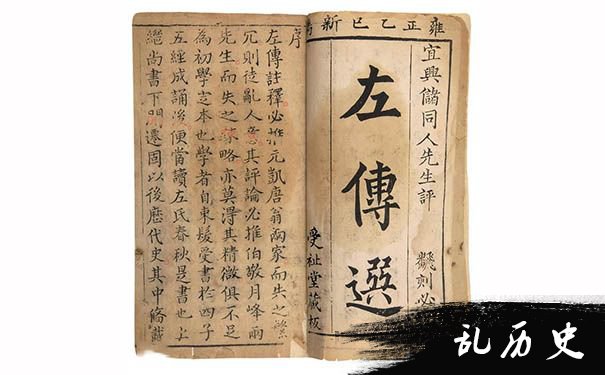 雍正乙巳新
宜興儲同人先生評
左傳選
翻刻必
受祉堂藏板
序
左傳註釋必推元凱唐翁兩家而失之繁
冗則徒亂人意其評論必推伯敬月峰兩
先生而失之略亦莫得其精微俱不足
為初學定本也學者自束髮受書於四子
五經成誦後便當讀左氏春秋是書也上
繼尚書下開遷固以後歷代史其中脩
乱历史